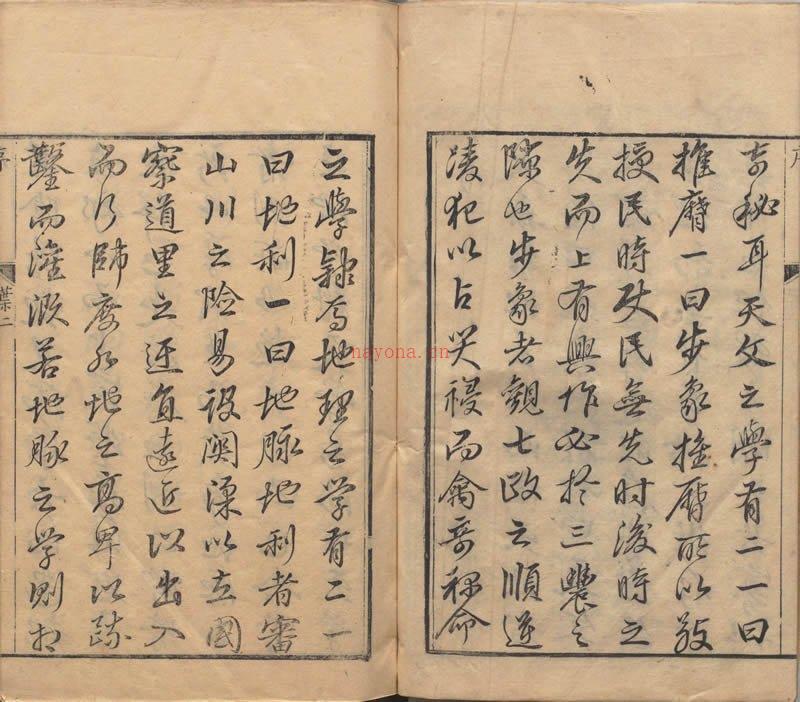 奇秘耳天文之學有二一曰
推曆一曰步象推曆所以敬
授民時使民無先时後時之
失而上有興作必於三農之
隙也步象者觀七政之順逆
凌犯以占災祲而禽奇祿命
之學隸焉地理之学有二一
曰地利一曰地脉地利者審
山川之險易設關梁以立國
察道里之迂直遠近以出入
而行師度水地之高卑以疏
鑿而灌溉若地脉之学則
序
葉二
nayona.cn